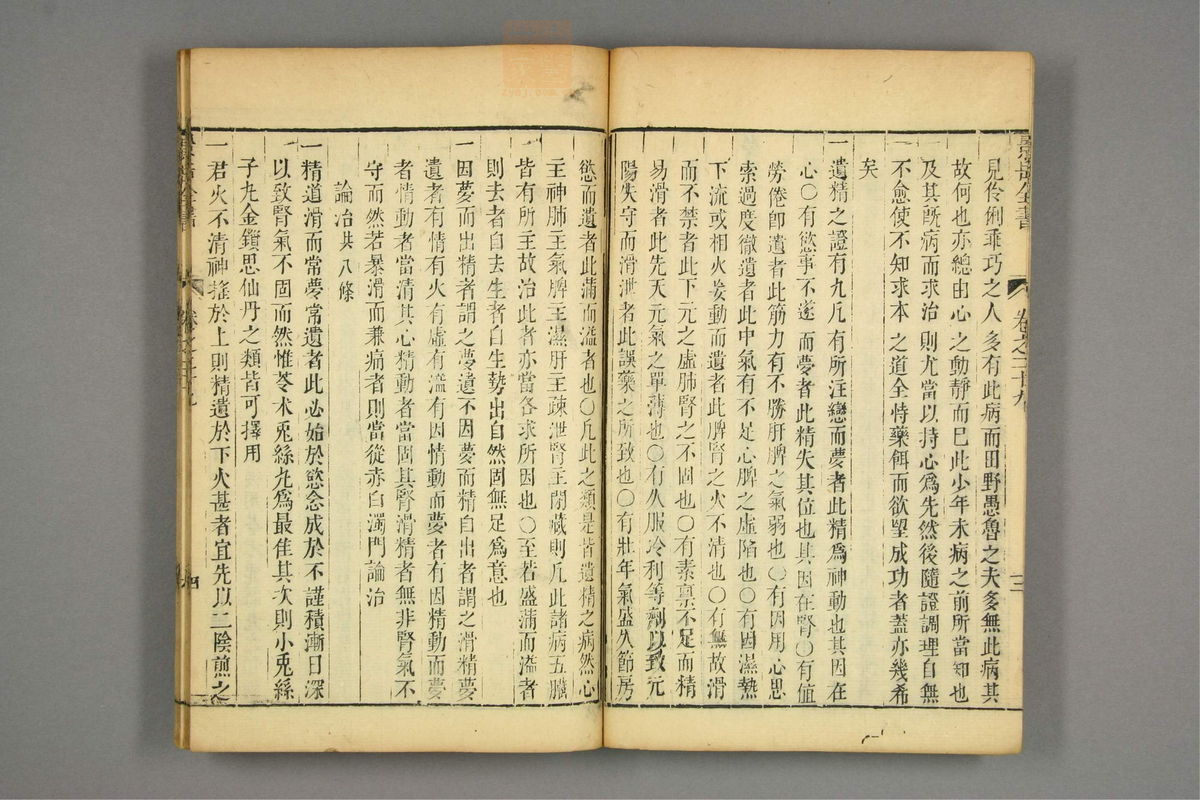 景岳全書
卷之二十九
三
見伶俐乖巧之人多有此病而田野愚魯之夫多無此病其
故何也亦總由心之動靜而已此少年未病之前所當知也
及其既病而求治則尤當以持心爲先然後隨證調理自無
不愈使不知求本之道全恃藥餌而欲望成功者蓋亦幾希
矣
一遺精之證有九凡有所注戀而夢者此精爲神動也其因在
心○有慾事不遂而夢者此精失其位也其因在腎○有値
勞倦卽遺者此筋力有不勝肝脾之氣弱也○有因用心思
索過度徹遺者此中氣有不足心脾之虛陷也○有因濕熱
下流或相火妄動而遺者此脾腎之火不清也○有無故滑
而不禁者此下元之虛肺腎之不固也○有素稟不足而精
易滑者此先天元氣之單薄也○有久服冷利等劑以致元
陽失守而滑泄者此誤藥之所致也○有壯年氣盛久節房
慾而遺者此滿而溢者也○凡此之類是皆遺精之病然心
主神肺主氣脾主濕肝主疎泄腎主閉藏則凡此諸病五臟
皆有所主故治此者亦當各求所因也○至若盛滿而溢者
則去者自去生者自生勢出自然固無足爲意也
一因夢而出精者謂之夢遺不因夢而精自出者謂之滑精夢
遺者有情有火有虛有溢有因情動而夢者有因精動而夢
者情動者當清其心精動者當固其腎滑精者無非腎氣不
守而然若暴滑而兼痛者則當從赤白濁門論治
論治共八條
一精道滑而常夢常遺者此必始於慾念成於不謹積漸日深
以致腎氣不固而然惟苓术兎絲丸爲最佳其次則小兎絲
子丸金鎖思仙丹之類皆可擇用
一君火不清神搖於上則精遺於下火甚者宜先以二陰煎之